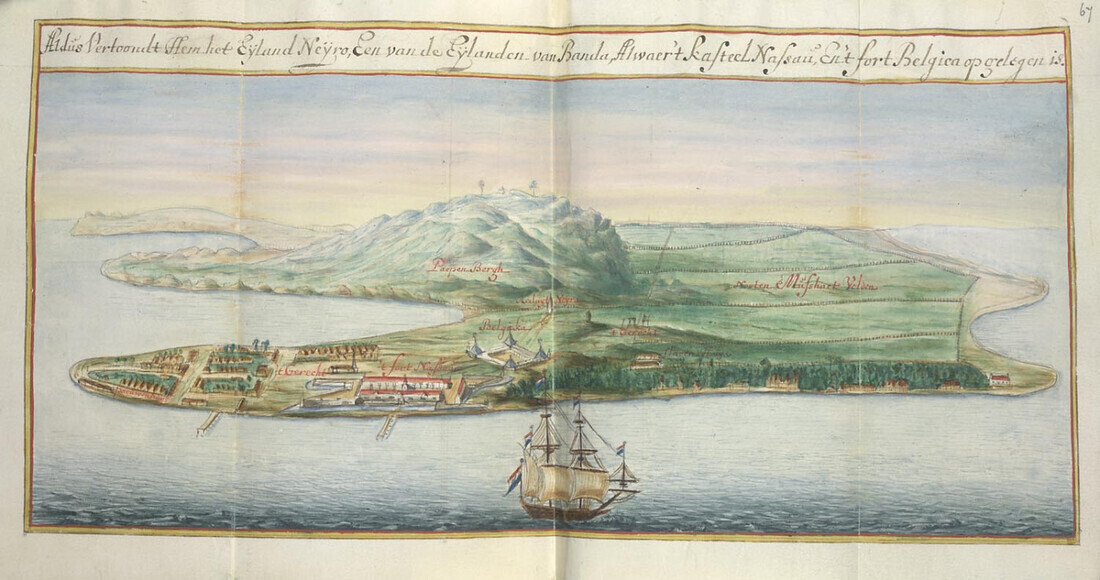 67
Aldus Vertoondt Hem het Eyland Neyro, Een van de Eylanden van Banda, Alwaer't Kasteel Nassau, En't fort Belgica op gelegen is.
Papen Bergh
Nooten Musschaet Velden
Belgica
't Gerecht
't Gerecht
't fort Nassau